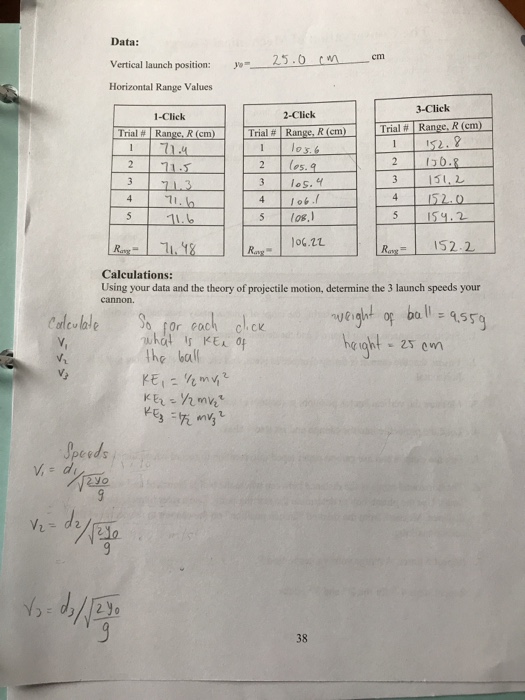 Data:
Vertical launch position: y₀= 25.0 cm cm
Horizontal Range Values
1-Click
Trial # Range, R (cm)
1 71.4
2 71.5
3 71.3
4 71.6
5 71.6
Ravg = 71.48
2-Click
Trial # Range, R (cm)
1 105.6
2 105.9
3 105.4
4 106.1
5 108.1
Ravg = 106.22
3-Click
Trial # Range, R (cm)
1 152.8
2 150.8
3 151.2
4 152.0
5 154.2
Ravg = 152.2
Calculations:
Using your data and the theory of projectile motion, determine the 3 launch speeds your
cannon.
Calculate
V₁
V₂
V₃
So for each click
what is KE of
the ball
KE₁ = 1/2 mv₁²
KE₂ = 1/2 mv₂²
KE₃ = 1/2 mv₃²
weight of ball = 9.55g
height = 25 cm
Speeds
V₁ = d₁/√(2y₀/g)
V₂ = d₂/√(2y₀/g)
V₃ = d₃/√(2y₀/g)
38